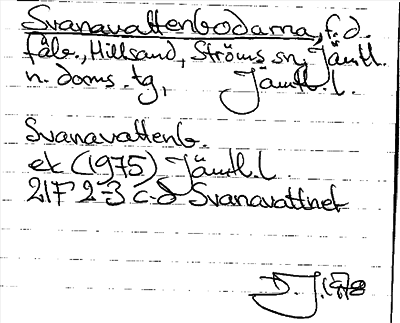 Svanavattenbodarna, f.d.
fäb., Hillsand, Ströms sn, Jämtl.
n. doms. tg, Jämtl. l.
Svanavattenb.
ek (1975) Jämtl. l.
21F 2-3 c-d Svanavattnet
D. J. 1978